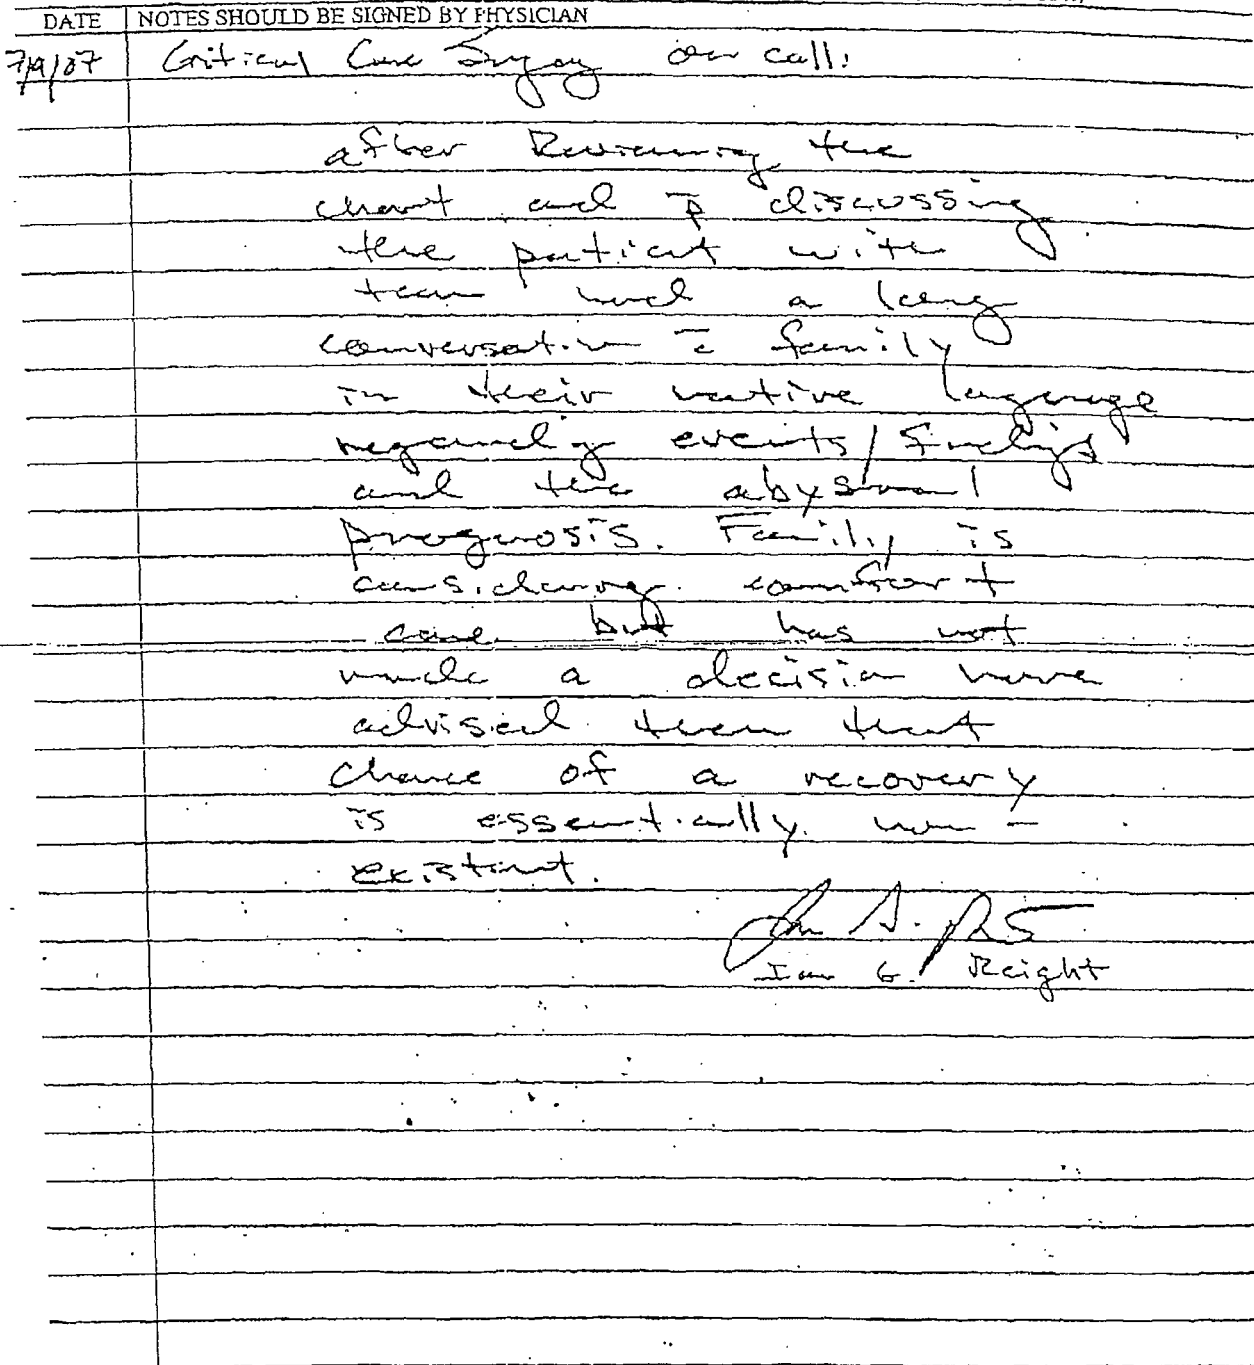 DATE NOTES SHOULD BE SIGNED BY PHYSICIAN
7/9/07 Critical Care Surgery on call:
after Reviewing the
chart and p̄ discussing
the patient with
team had a long
conversation c̄ family
in their native language
regarding events/findings
and the abysmal
prognosis. Family is
considering comfort
care but has not
made a decision have
advised them that
chance of a recovery
is essentially non-
existent.
Ian G. Reight